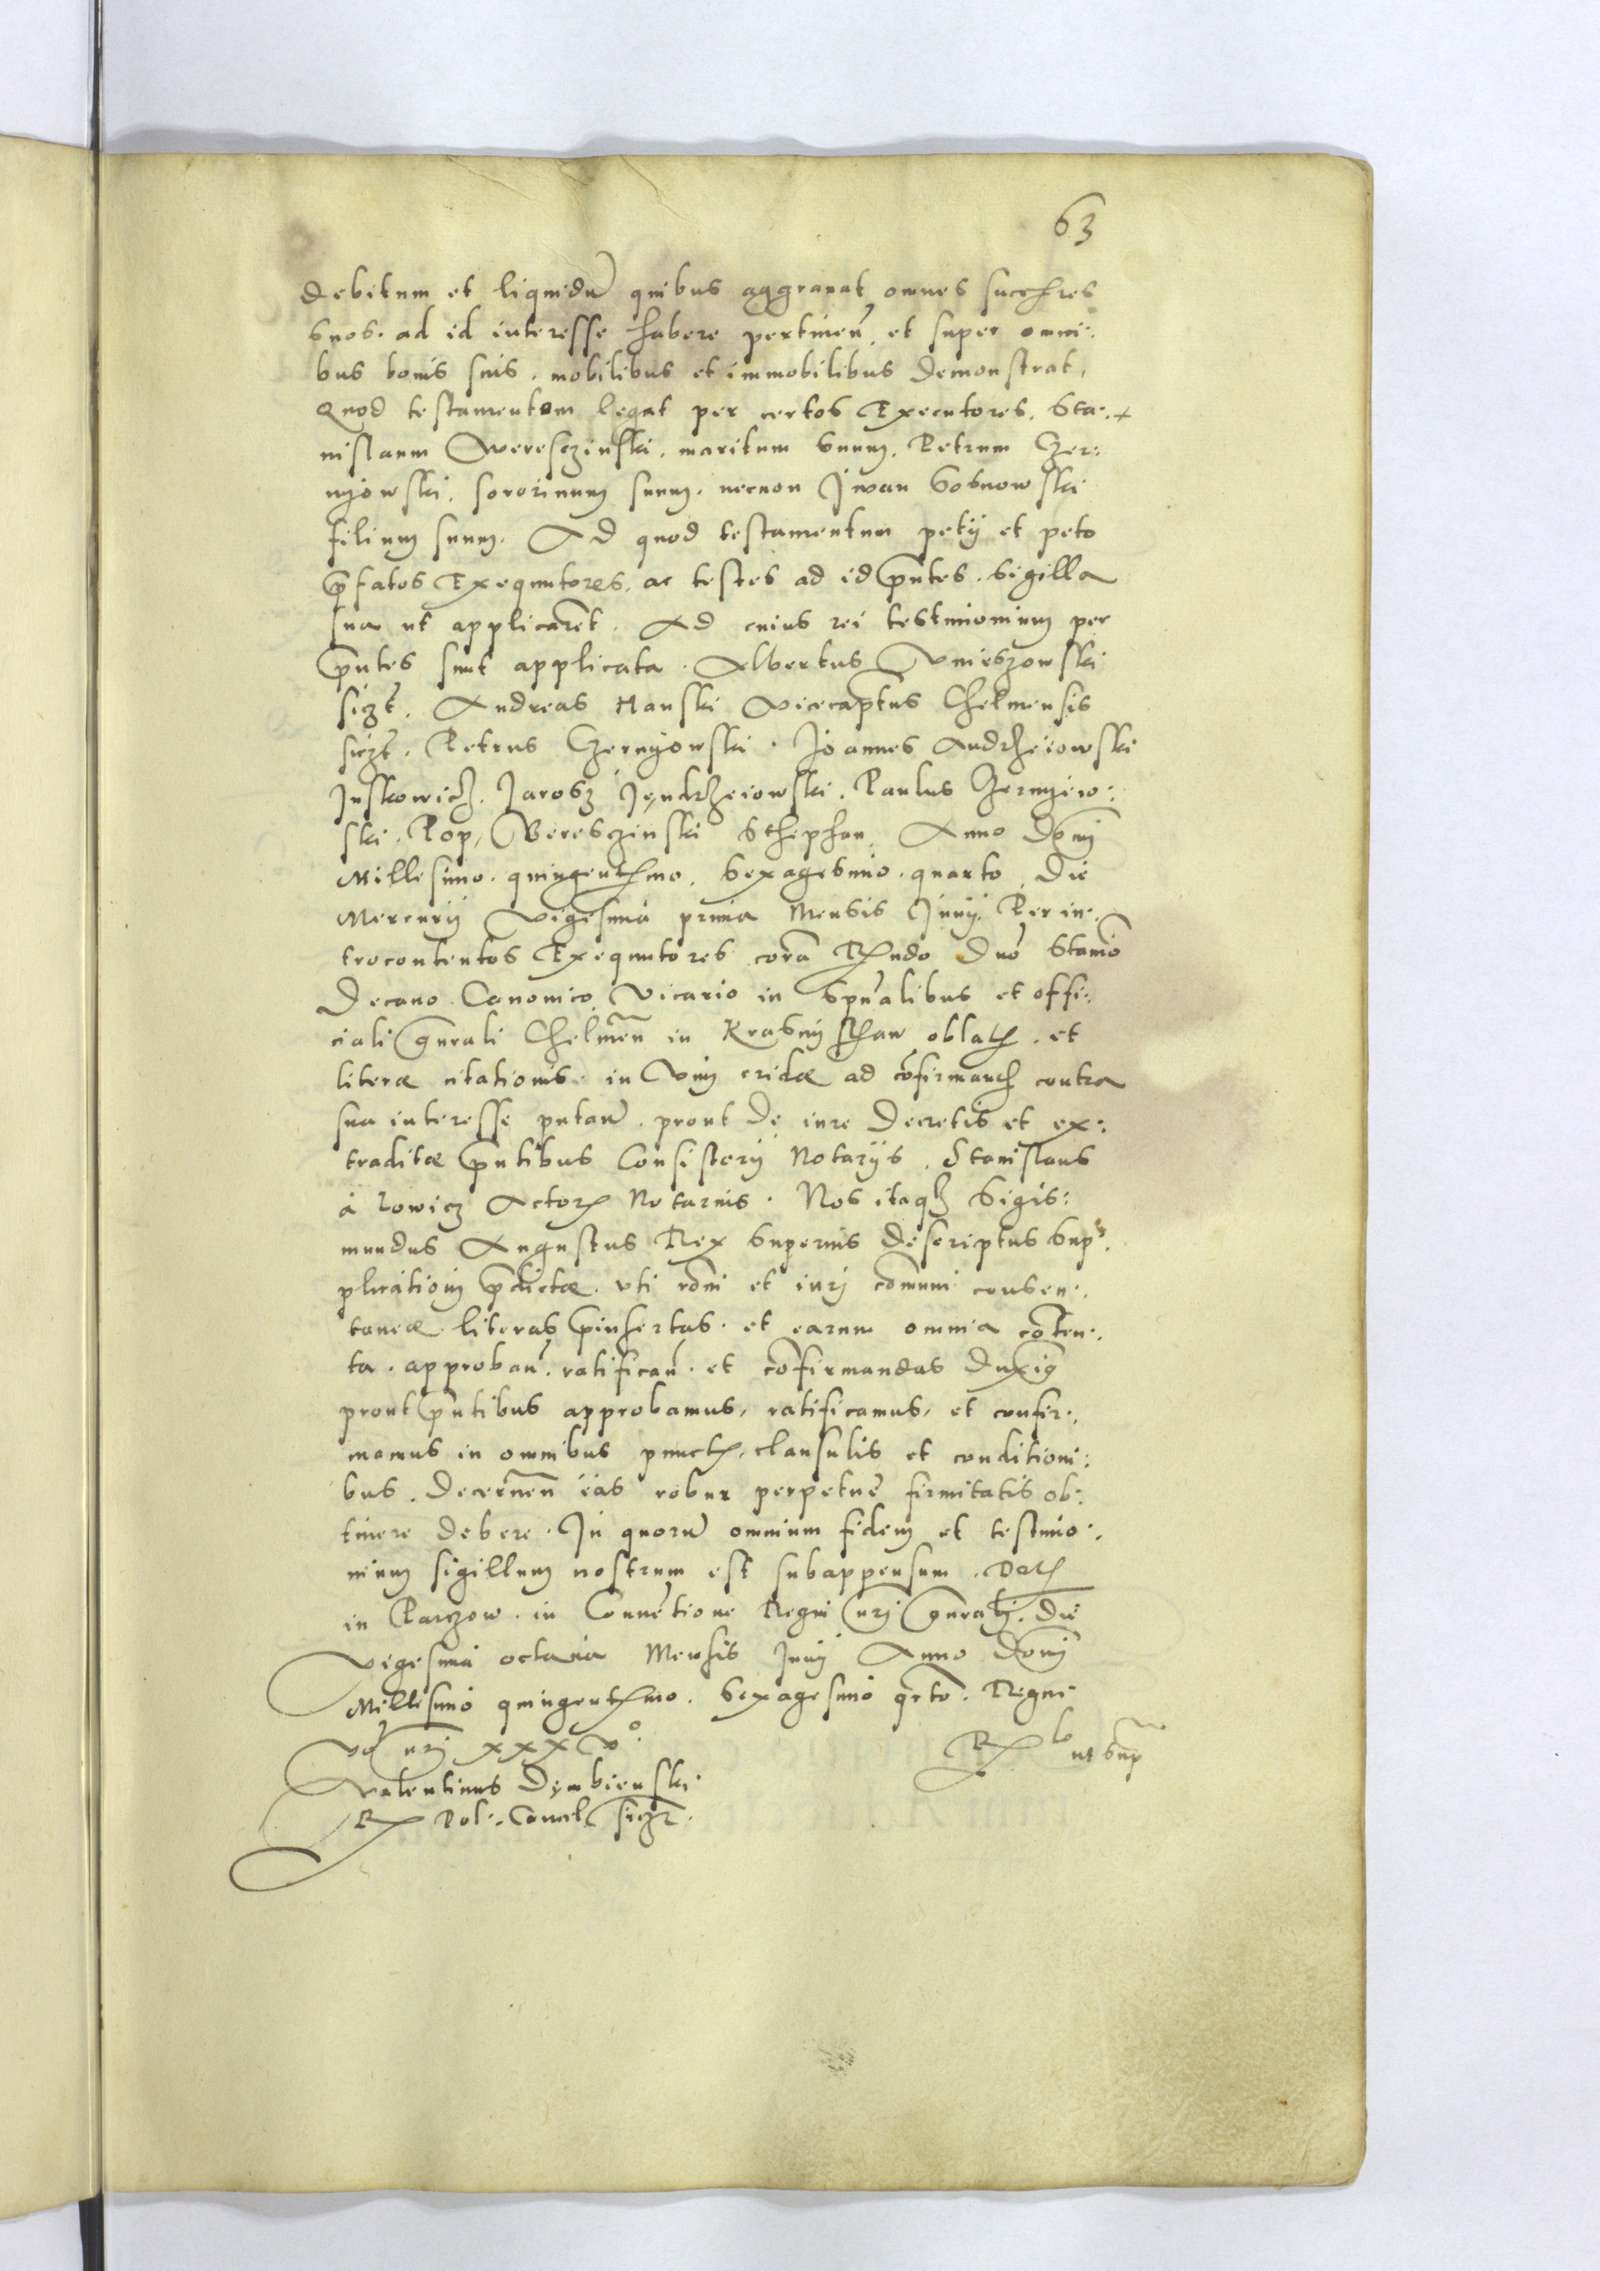 63
debitum et liquidu quibus aggrauat omnes succres
suos. ad id interesse habere pertinen, et super omni:
bus bonis suis. mobilibus et immobilibus demonstrat,
Quod testamentom legat per certos Executores. Sta: +
nislaum Weresczinski. maritum suum. Petrum Czer:
nyowski. sororinum suum. necnon Jwan Sosnowski
filium suum. Ad quod testamentum petij et peto
pfatos Exequutores, ac testes ad id pntes. sigilla
sua ut applicaret. Ad cuius rei testimonium per
pntes sunt applicata. Albertus Vnieszowski
ssczt. Andreas Hanski Vicecaptus Chelmensis
ssczt. Petrus Czernyowski. Joannes Andrzeiowski
Juskowicz. Jarosz Jendrzeiowski. Paulus Czernyiow:
ski. Pop, Weresczinski Sthephan. Anno Domi
Millesimo. quingentmo. Sexagesimo. quarto, Die
Mercurij vigesima prima Mensis Junij. Per in:
trocontentos Exequutores cora Rndo Dno Stanio
Decano. Canonico Vicario in spualibus et offi:
ciali gnrali Chelmen in Krasnysthaw oblat. et
literæ citationis. in Vim cridæ ad cofirmand contra
sua interesse putan. prout de iure decretis et ex:
traditæ pntibus Consistorij Notarijs. Stanislaus
à Lowicz Actor Notarius. Nos itaq Sigis:
mundus Augustus Rex superius descriptus sup
plicationi pdictæ. vti roni et iuri comuni consen:
taneæ. literas pinsertas. et earum omnia conten:
ta. approban. ratifican. et cofirmandas duxim
prout pntibus approbamus, ratificamus, et confir:
mamus in omnibus punct, clausulis et conditioni:
bus. Decernen eas robur perpetue firmitatis ob:
tinere debere. In quoru omnium fidem et testimo:
nium sigillum nostrum est subappensum. Dat
in Parczow. in Conuetione Regni nri gnrali. Die
vigesima octaua Mensis Junij Anno Domi
Millesimo quingentmo. Sexagesimo qrto. Regni
vo nri xxxvo.
Valentinus Dembienski
R Pol. Cancel ssczt.
R ut sup